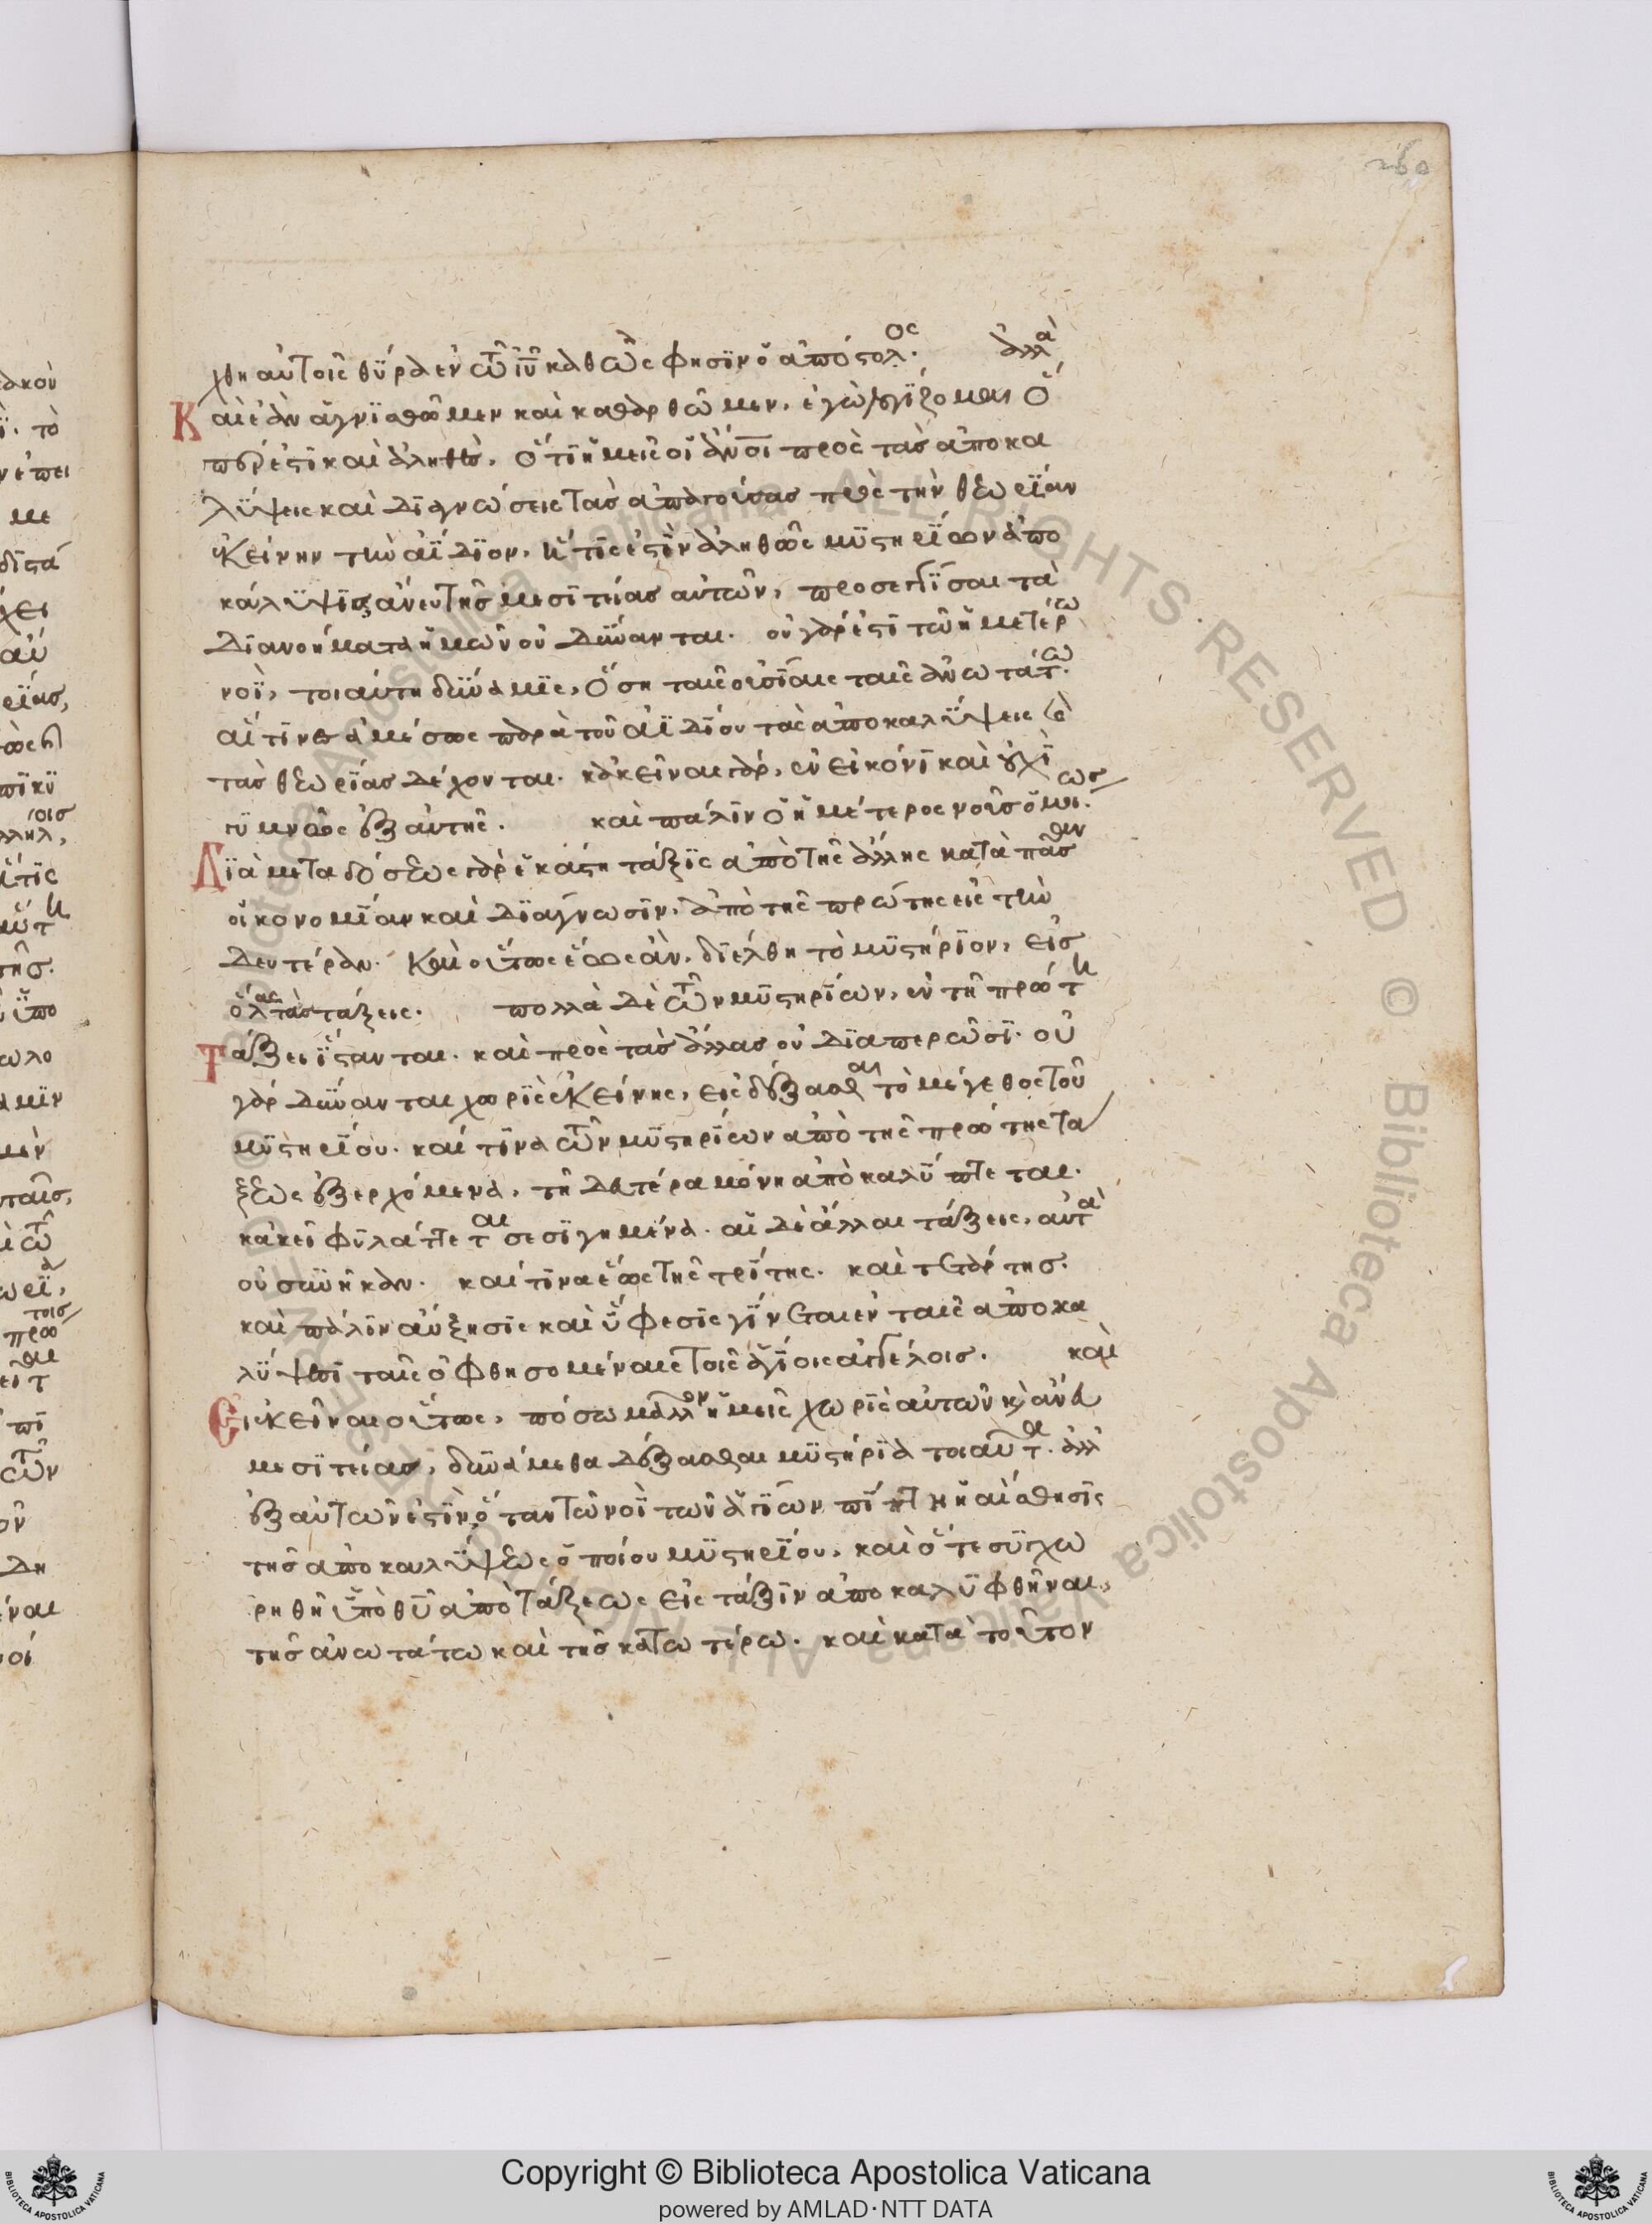 260
χθη αὐτοῖς θύρα ἐν τῶ ιυ καθὼς φησὶν ὁ ἀπόστολος. ἀλλὰ
Καὶ ἐὰν ἁγνισθῶμεν καὶ καθαρθῶμεν, ἐγὼ λογίζομαι ὅ
περ ἐστὶ καὶ ἀληθὲς, ὅτι ἡμεῖς οἱ ἀνοι πρὸς τὰς ἀποκα
λύψεις καὶ διαγνώσεις τὰς ἁπατούσας πρὸς τὴν θεωρίαν
ἐκείνην τὴν ἀΐδιον, ἥτις ἐστὶν ἀληθῶς μυστηρίων ἀπο
κάλυψις ἄνευ τῆς μεσιτείας αὐτῶν, προσεγγίσαι τὰ
διανοήματα ἡμῶν οὐ δύνανται. οὐ γάρ ἐστι τῶ ἡμετέρω
νοῒ, τοιαύτη δύναμις, ὅση ταῖς οὐσίαις ταῖς ἀνωτάτω.
αἵτινες ἀμέσως παρὰ τοῦ ἀϊδίου τὰς ἀποκαλύψεις καὶ
τὰς θεωρίας δέχονται. κἀκεῖναι γάρ, ἐν εἰκόνι καὶ οὐχὶ
γυμνῶς ἐξ αὐτῆς. καὶ πάλιν ὁ ἡμέτερος νοῦς ὁμοίως.
Διὰ μεταδόσεως γὰρ ἑκάστη τάξις ἀπὸ τῆς ἄλλης κατὰ πᾶσαν
οἰκονομίαν καὶ διάγνωσιν, ἀπὸ τῆς πρώτης εἰς τὴν
δευτέραν. Καὶ οὕτως ἕως ἂν, διέλθη τὸ μυστήριον, εἰς
ὅλας τὰς τάξεις. πολλὰ δὲ τῶν μυστηρίων, ἐν τῆ πρώτη
Τάξει ἵστανται. καὶ πρὸς τὰς ἄλλας οὐ διαπερῶσι. οὐ
γὰρ δύνανται χωρὶς ἐκείνης, εἰσδέξασθαι τὸ μέγεθος τοῦ
μυστηρίου. καί τινα τῶν μυστηρίων ἀπὸ τῆς πρώτης τά
ξεως ἐξερχόμενα, τῆ δευτέρα μόνη ἀποκαλύπτεται.
κἀκεῖ φυλάττεται σεσιγημένα. αἱ δὲ ἄλλαι τάξεις, αὐτὰ
οὐ συνῆκαν. καί τινα ἕως τῆς τρίτης. καὶ τετάρτης.
καὶ πάλιν αὔξησις καὶ ὕφεσις γίνεται ἐν ταῖς ἀποκα
λύψεσι ταῖς ὀφθησομέναις τοῖς ἁγίοις ἀγγέλοις. καὶ
Εἰ ἐκεῖναι οὕτως, πόσω μᾶλλον ἡμεῖς χωρὶς αὐτῶν καὶ ἄνευ
μεσιτείας, δυνάμεθα δέξασθαι μυστήρια τοιαῦτα. ἀλλ'
ἐξ αὐτῶν ἐστὶν, ὅταν τῶ νοῒ τῶν ἁγίων πίπτη ἡ αἴσθησις
τῆς ἀποκαλύψεως ὁποίου μυστηρίου, καὶ ὅτε συγχω
ρηθῆ ὑπὸ θυ ἀπὸ τάξεως εἰς τάξιν ἀποκαλυφθῆναι,
τῆς ἀνωτάτω καὶ τῆς κατωτέρω. καὶ κατὰ τοῦτον
Copyright © Biblioteca Apostolica Vaticana
powered by AMLAD·NTT DATA